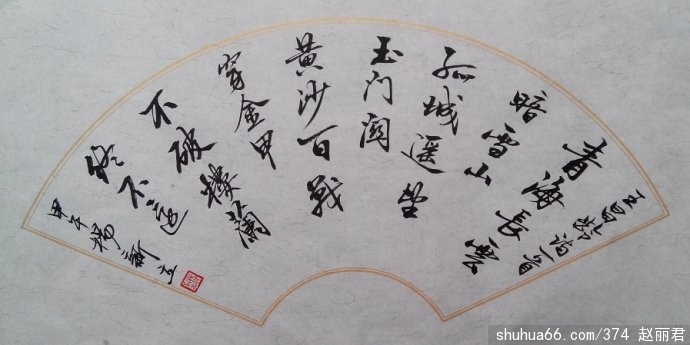 王昌龄诗一首
青海長雲
暗雪山
孤城遥望
玉门関
黄沙百战
穿金甲
不破樓蘭
终不还
甲午杨新立
shuhua66.com/374 赵丽君